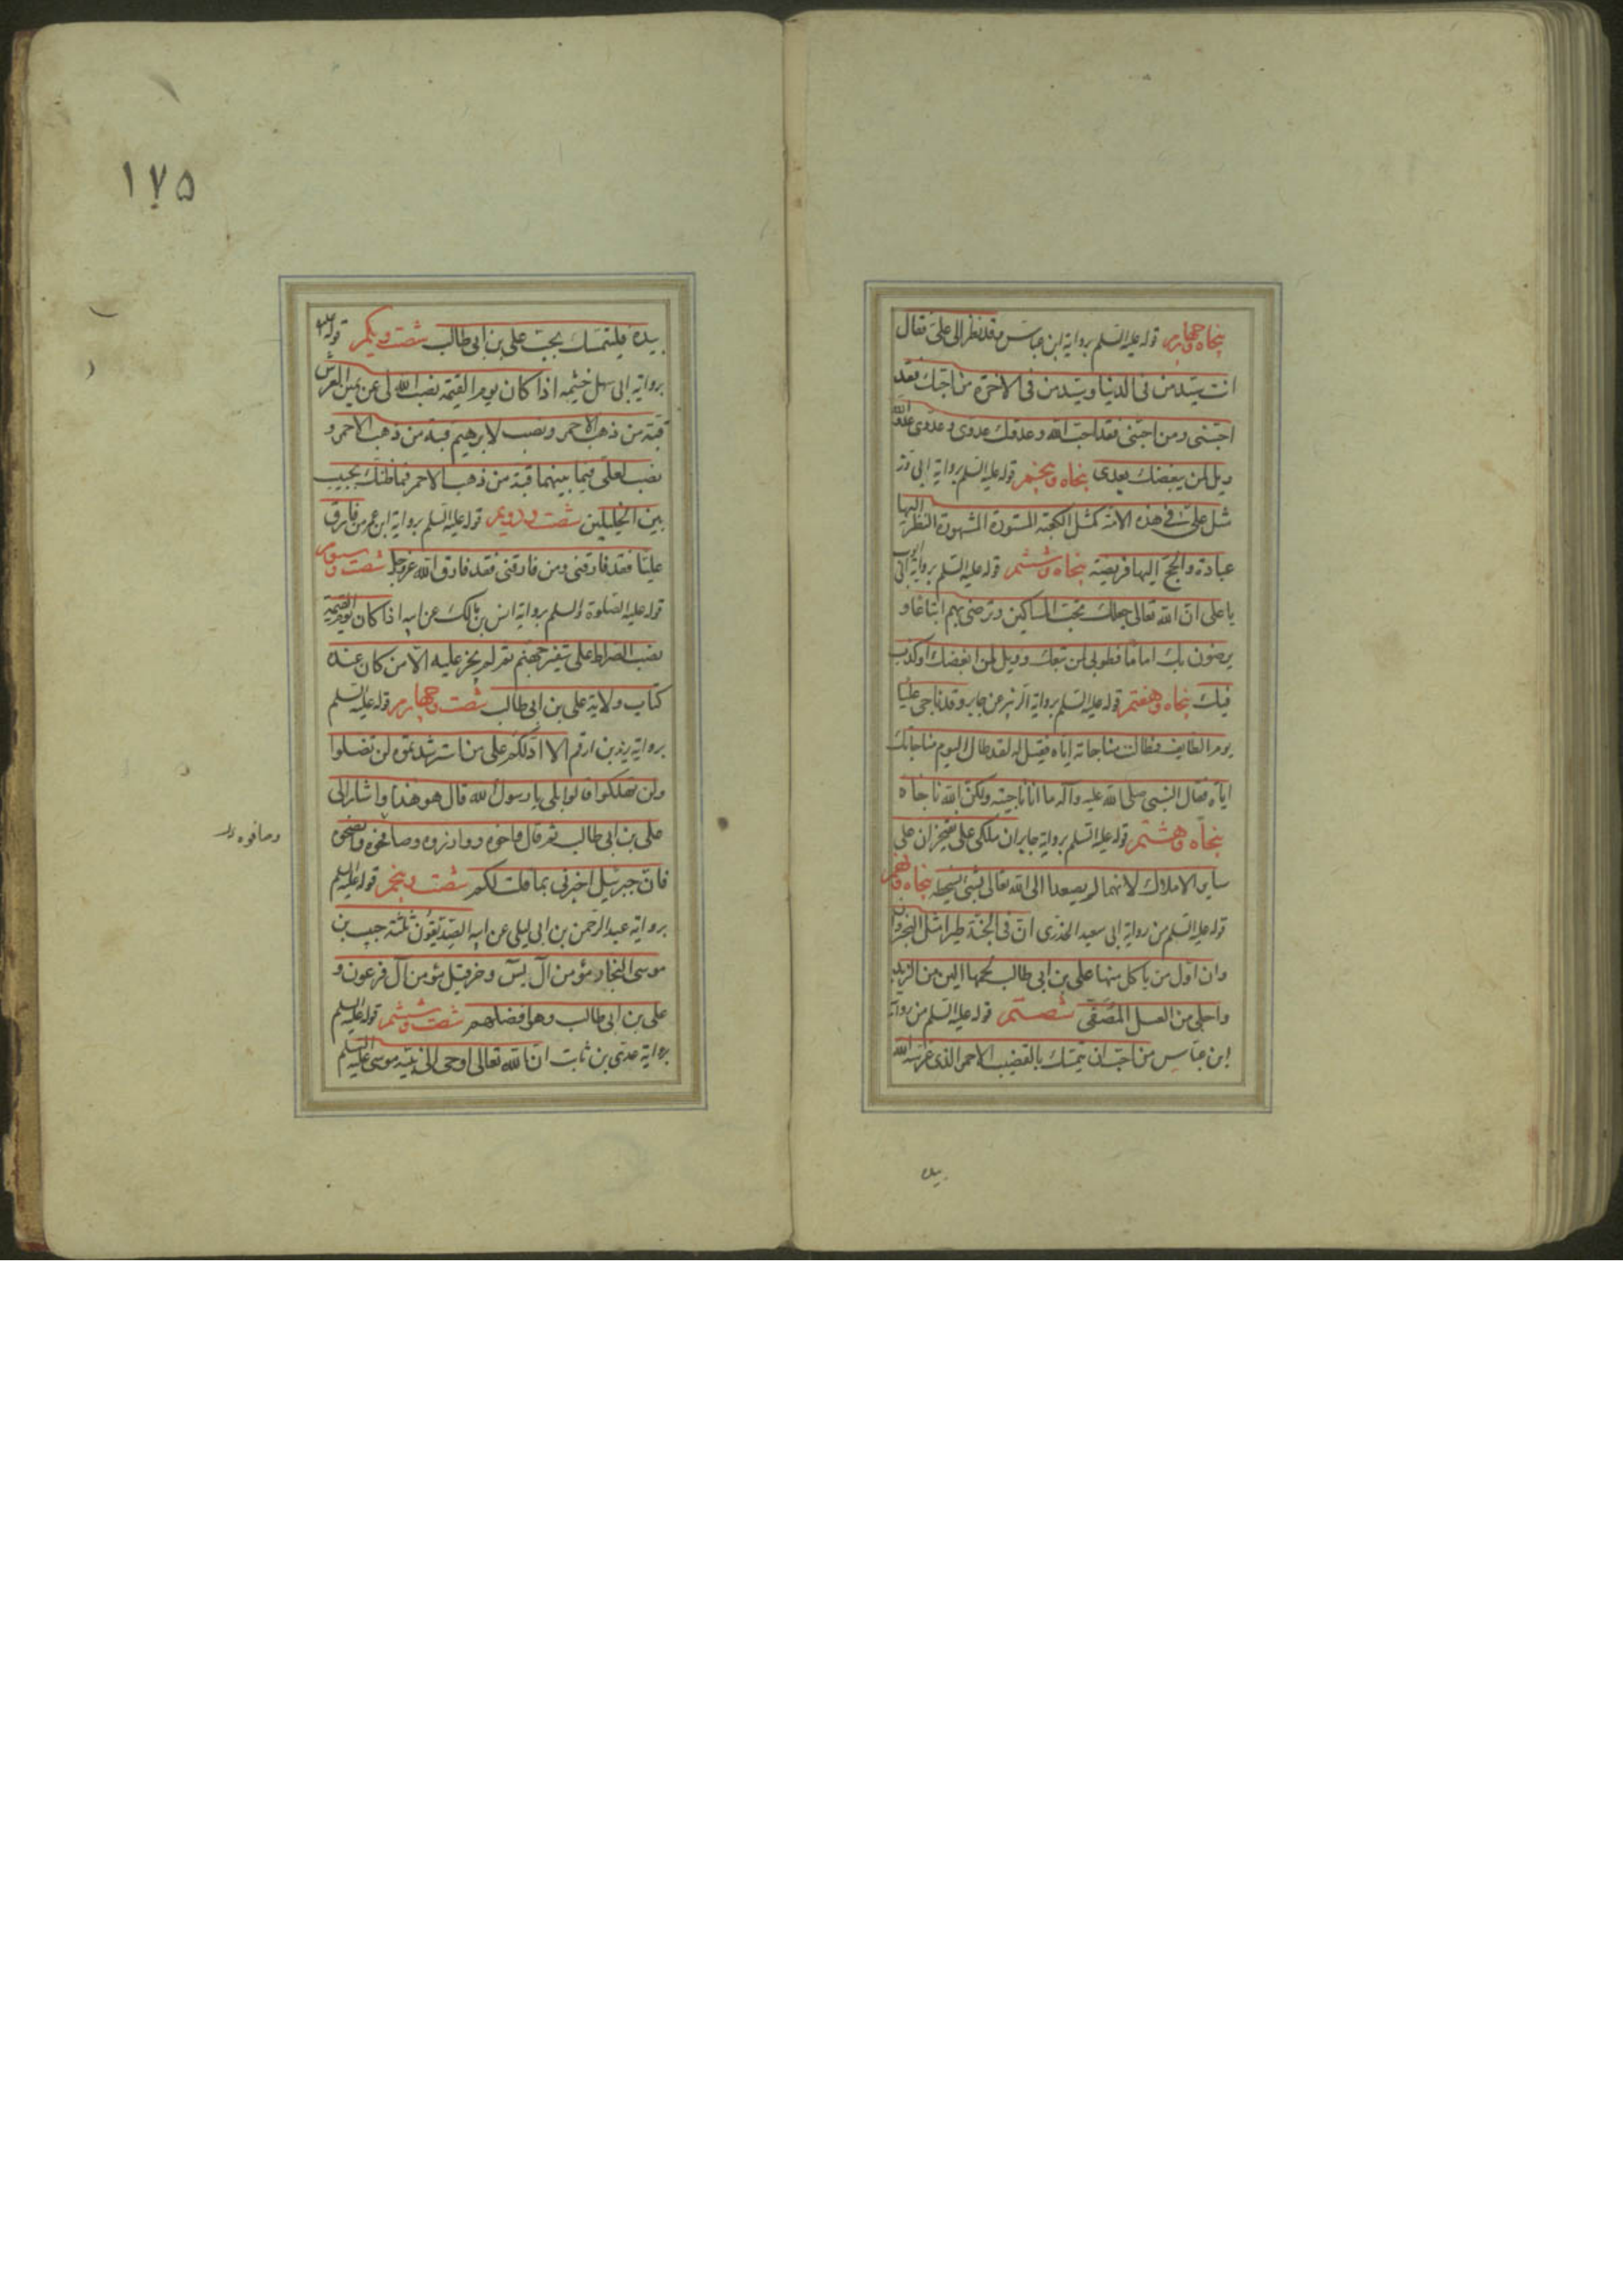 پنجاه و چهارم قوله علیه السلم بروایة ابن عباس و قد نظر الی علی فقال
انت سید من فی الدنیا و سید من فی الاخرة من احبک فقد
احبنی و من احبنی فقد احب الله و عدوک عدوی و عدوی عدو الله
ویل لمن یبغضک بعدی پنجاه و پنجم قوله علیه السلم بروایة ابی ذر
مثل علی فی هذه الامة کمثل الکعبة المستورة المشهورة النظر الیها
عبادة و الحج الیها فریضة پنجاه و ششم قوله علیه السلم بروایة ابی ایوب
یا علی ان الله تعالی جعلک تحب المساکین و ترضی بهم اتباعا و
یرضون بک اماما فطوبی لمن تبعک و ویل لمن ابغضک او کذب
فیک پنجاه و هفتم قوله علیه السلم بروایة الزبیر عن جابر و قد ناجی علیا
یوم الطایف فطالت مناجاته ایاه فقیل له لقد طال الیوم مناجاتک
ایاه فقال النبی صلی الله علیه و آله ما انا ناجیته ولکن الله ناجاه
پنجاه و هشتم قوله علیه السلم بروایة جابر ان ملکی علی یفتخران علی
سایر الاملاک لانهما لم یصعدا الی الله تعالی بشئ یسخطه پنجاه و نهم
قوله علیه السلم من روایة ابی سعید الخذری ان فی الجنة طیرا مثل البخت
وان اول من یاکل منها علی بن ابی طالب لحمها الین من الزبد
و احلی من العسل المصفی شصتم قوله علیه السلم من روایة
ابن عباس من احب ان یتمسک بالقضیب الاحمر الذی غرسه الله
بیده
۱۷۵
بیده فلیتمسک بحب علی بن ابی طالب شصت و یکم قوله علیه
بروایة ابی سهل خثیمه اذا کان یوم القیمة نصب الله لی عن یمین العرش
قبة من ذهب الاحمر و نصب لابرهیم قبة من ذهب الاحمر و
نصب لعلی فیما بینهما قبة من ذهب الاحمر فما ظنک بحبیب
بین الخلیلین شصت و دویم قوله علیه السلم بروایة ابن عمر من فارق
علیا فقد فارقنی و من فارقنی فقد فارق الله عز و جل شصت و سوم
قوله علیه الصلوة و السلم بروایة انس بن مالک عن ابیه اذا کان یوم القیمة
نصب الصراط علی شفیر جهنم ثم لم یجز علیه الا من کان عنده
کتاب ولایة علی بن ابی طالب شصت و چهارم قوله علیه السلم
بروایة زید بن ارقم الا ادلکم علی من استرشدتموه لن تضلوا
ولن تهلکوا قالوا بلی یا رسول الله قال هو هذا و اشار الی
علی بن ابی طالب ثم قال واخوه و وازروه و صافحوه و انصحوه
وصافوه
فان جبرئیل اخبرنی بما قلت لکم شصت و پنجم قوله علیه السلم
بروایة عبد الرحمن بن ابی لیلی عن ابیه الصدیقون ثلثة حبیب بن
موسی النجار مؤمن آل یس و خرقیل مؤمن آل فرعون و
علی بن ابی طالب و هو افضلهم شصت و ششم قوله علیه السلم
بروایة عدی بن ثابت ان الله تعالی اوحی الی نبیه موسی علیه السلم